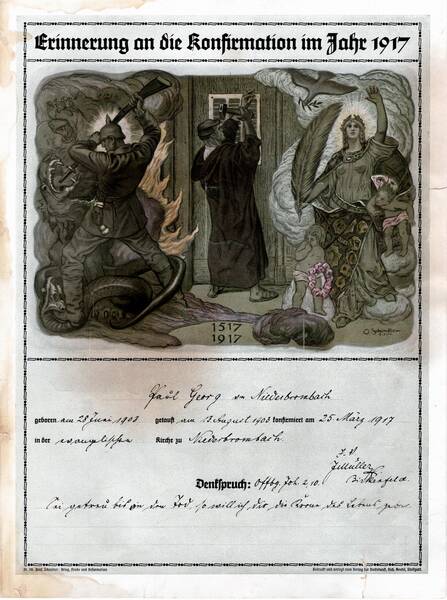 Erinnerung an die Konfirmation im Jahr 1917
1517
1917
Paul Georg von Niederbrombach
geboren am 28 Juni 1903 getauft am 13 August 1903 konfirmiert am 25 März 1917
in der evangelischen Kirche zu Niederbrombach.
I. V.
Birkenfeld
Denkspruch: Offbg. Joh 2 10.
Sei getreu bis an den Tod, so will ich dir die Krone des Lebens geben